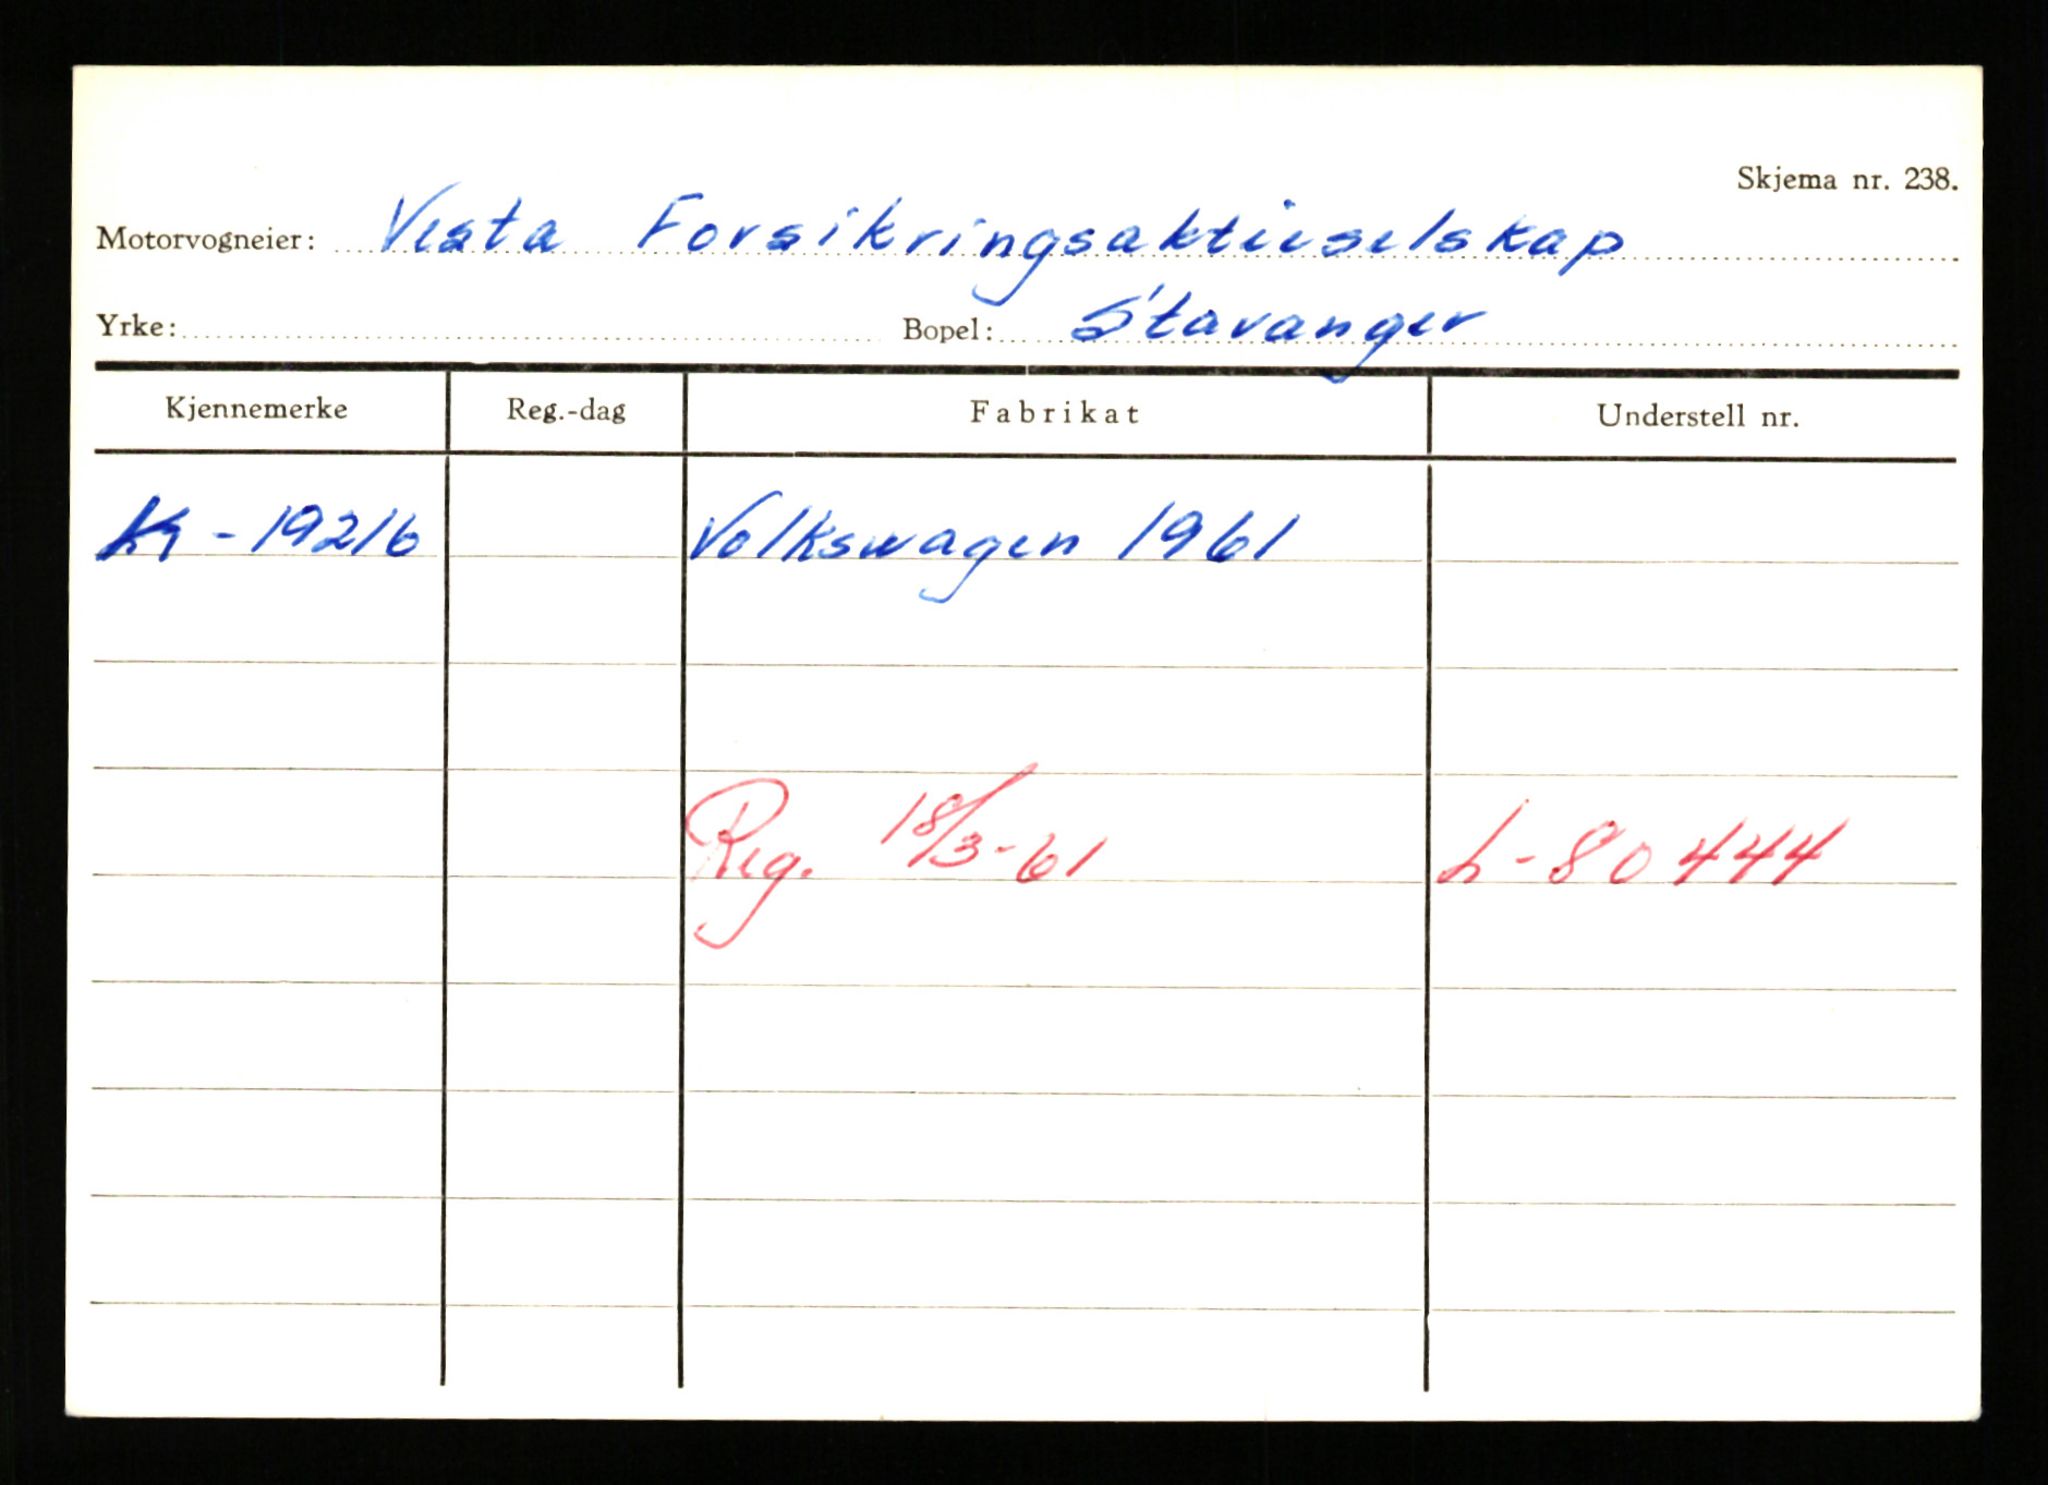 Skjema nr. 238.
Motorvogneier: Vesta Forsikringsaktieselskap
Yrke: Bopel: Stavanger
Kjennemerke Reg.-dag Fabrikat Understell nr.
- 19216 Volkswagen 1961
Reg. 18/3-61 L-80444